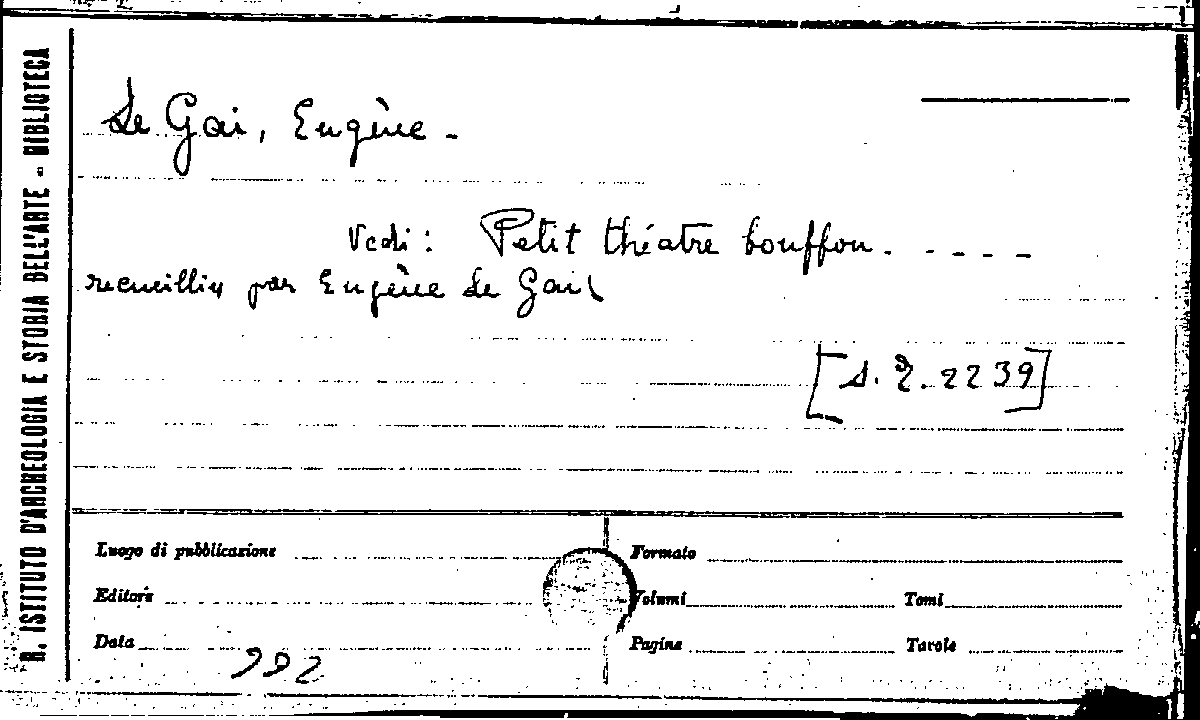 R. ISTITUTO D'ARCHEOLOGIA E STORIA DELL'ARTE - BIBLIOTECA
Le Gai, Eugène -
Vedi : Petit théatre bouffon. - - - -
recueillis par Eugène Le Gai
[S. Z. 2239]
Luogo di pubblicazione
Formato
Editore
Volumi
Tomi
Data
Pagine
Tavole
992